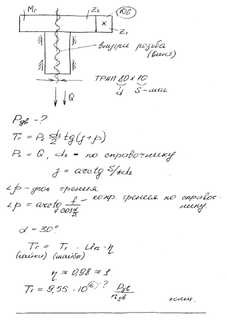 Mг
Z2
106
x
Z1
внутри резьба
(винт)
ТРАП 80 x 10
d S-шаг
Q
Pдв - ?
T1 = Pa d2/2 tg(j + ρ)
Pa = Q, d2 - по справочнику
j = arctg S/πd2
∠ρ - угол трения
∠ρ = arctg f/cos α/2 - коэф. трения по справоч-
нику
α = 30°
Tг = T1 · Uп · η
(гайки)
η ≈ 0,98 ≈ 1
T1 = 9,55 · 10⁶ · Pдв/nдв